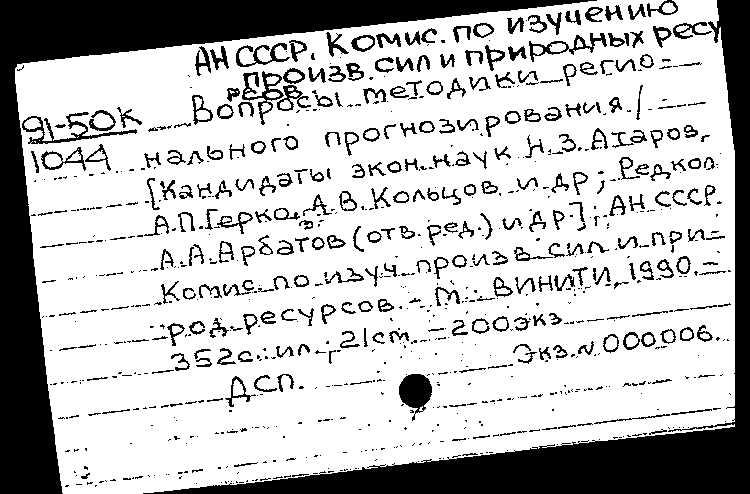 АН СССР. Комис. по изучению
произв. сил и природных ресу
рсов.
91-50К Вопросы методики регио=
1044 нального прогнозирования /
[Кандидаты экон. наук Н.З. Атаров,
А.П. Герко, А.В. Кольцов и др; Редкол
А.А. Арбатов (отв. ред.) и др.]; АН СССР.
Комис. по изуч. произв. сил и при=
род. ресурсов. - М.: ВИНИТИ, 1990. -
352с.: ил.; 21 см. - 200 экз
ДСП. Экз. N 000006.